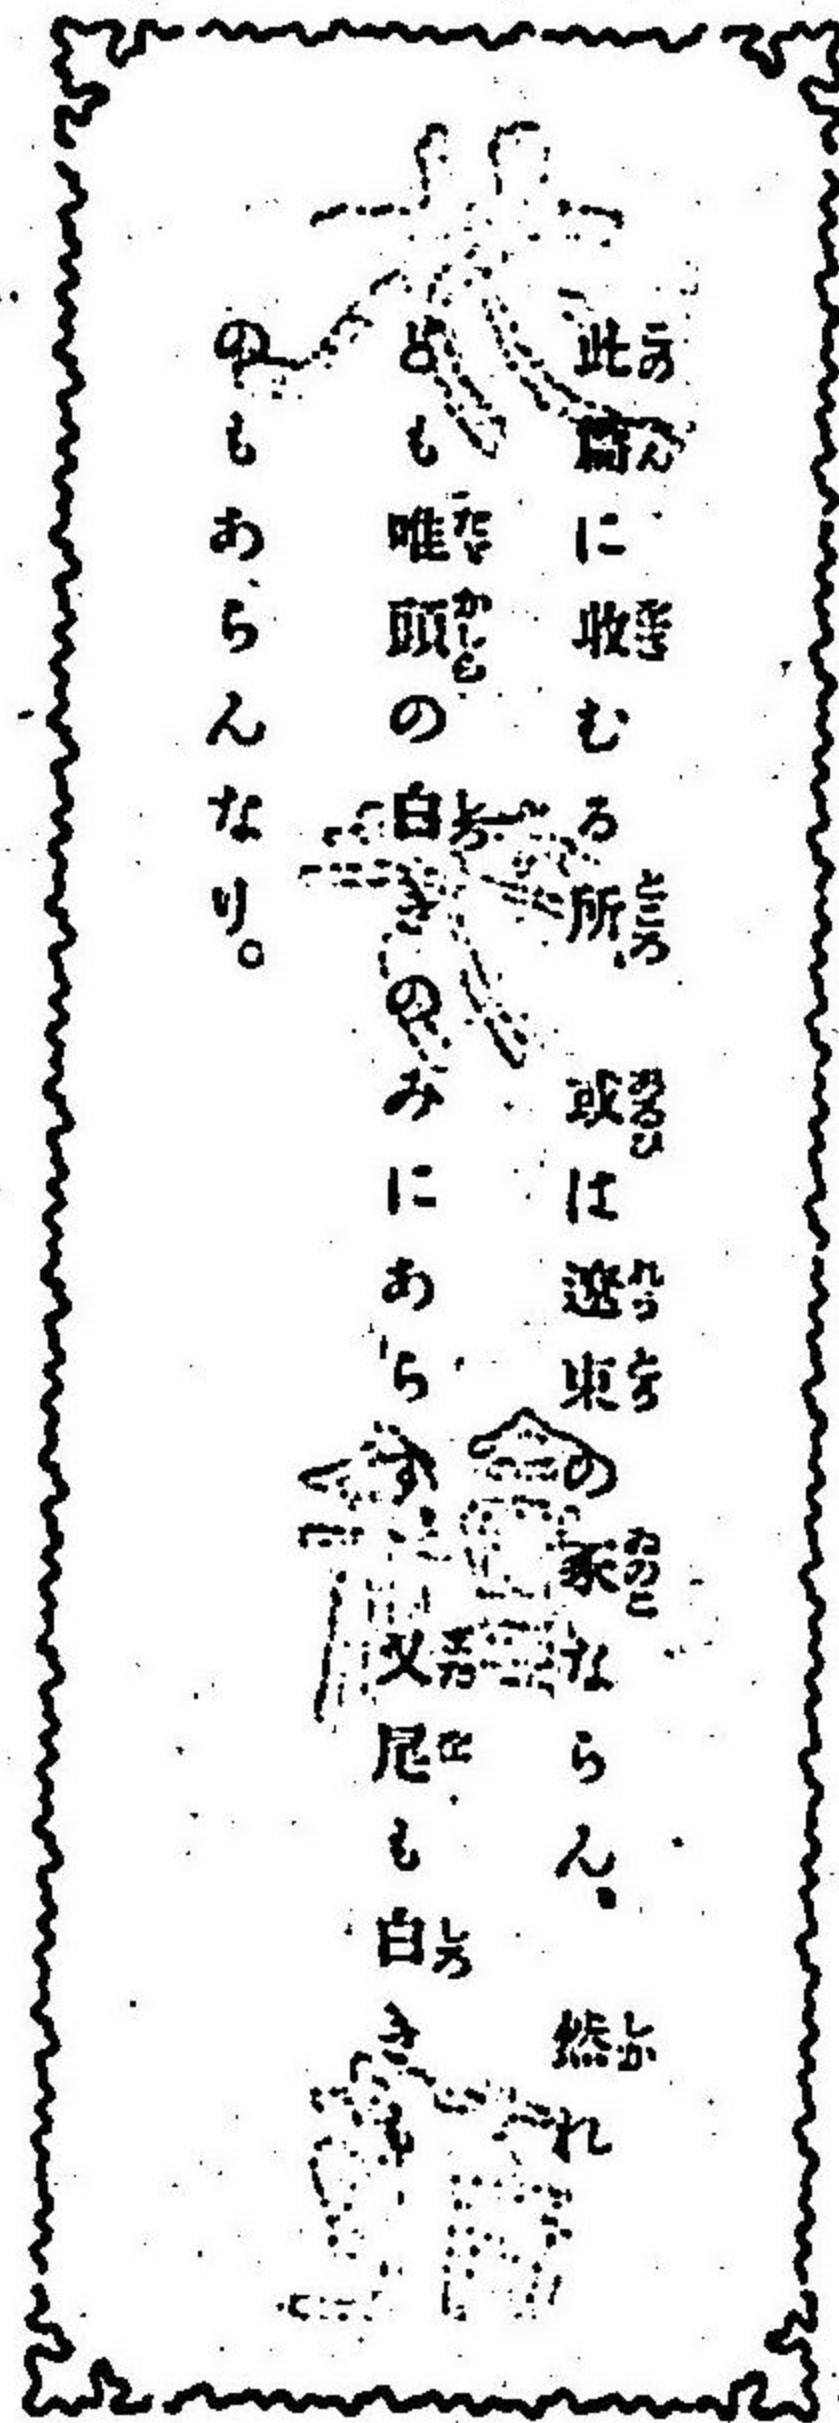 此篇に收むる所、或は遼東の豕ならん、然れ
ども唯頭の白きのみにあらず、又尾も白きも
のもあらんなり。